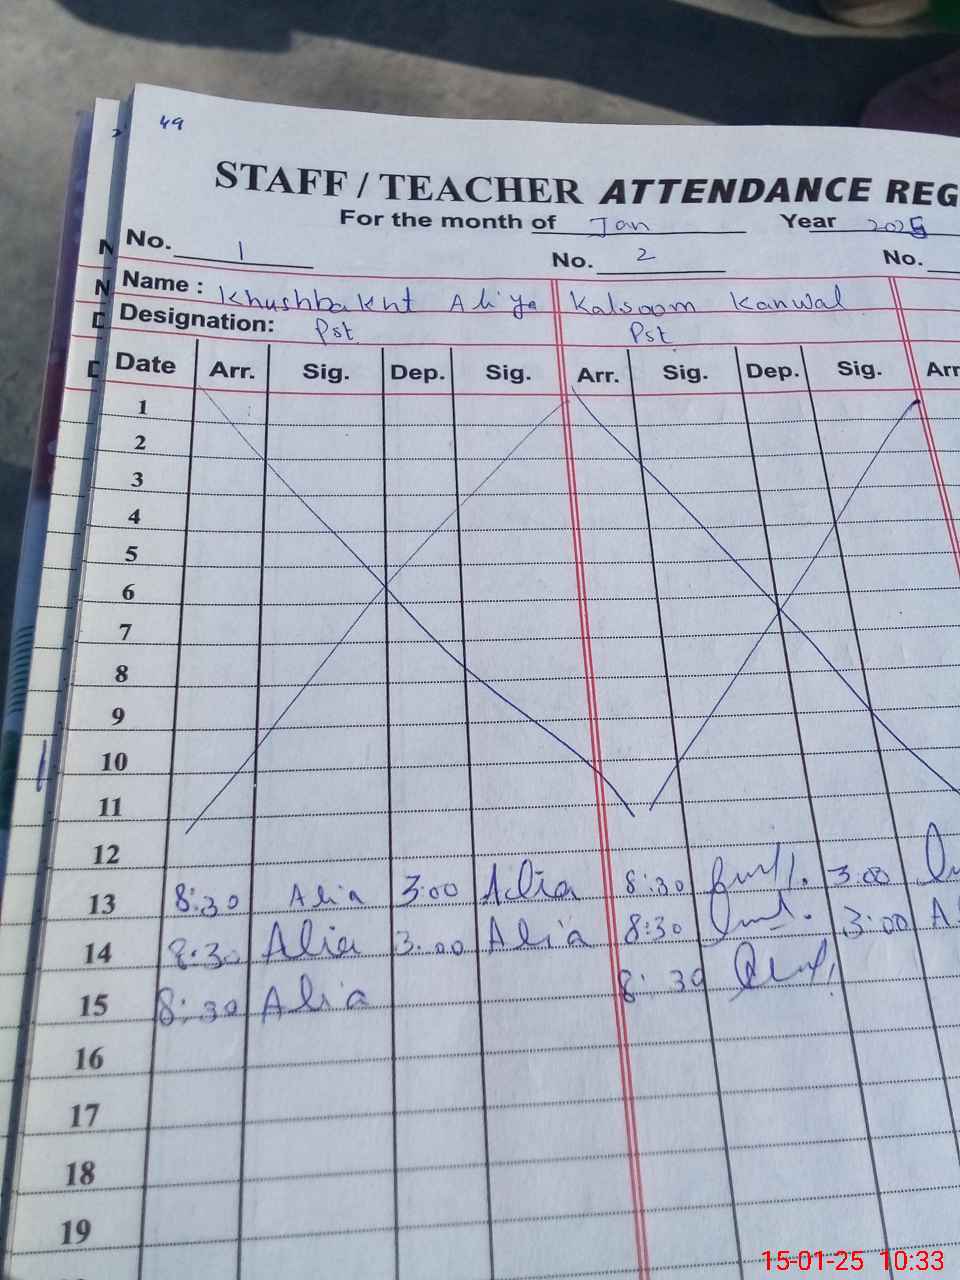 49
STAFF / TEACHER ATTENDANCE REG
For the month of Jan Year 2025
No. 1 No. 2 No.
Name : Khushbakht Aliya Kalsoom Kanwal
Designation: Pst Pst
Date Arr. Sig. Dep. Sig. Arr. Sig. Dep. Sig. Arr
1
2
3
4
5
6
7
8
9
10
11
12
13 8:30 Alia 3:00 Alia 8:30 3:00
14 8:30 Alia 3:00 Alia 8:30 3:00
15 8:30 Alia 8:30
16
17
18
19
15-01-25 10:33